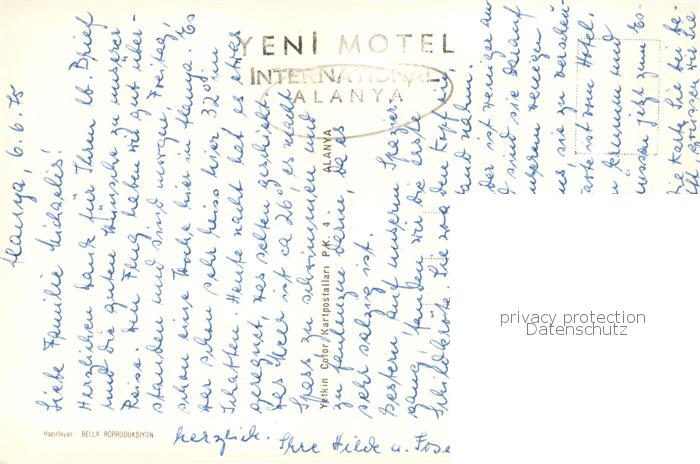 YENİ MOTEL
INTERNATIONAL
ALANYA
Alanya, 6.6.75
Liebe Familie Michaelis!
Herzlichen Dank für Ihren lb. Brief
und die guten Wünsche zu unserer
Reise. Den Flug haben wir gut über-
standen und sind morgen, Freitag,
schon eine Woche hier in Alanya. Es
war schon sehr heiss hier 32° im
Schatten. Heute nacht hat es etwas
geregnet, was selten geschieht.
Das Meer ist ca 26° es macht
Spass zu schwimmen und
zu faulenzen darin, da es
sehr salzig ist.
Gestern auf unserm Spazier-
gang, fanden wir die erste
Schildkröte. Sie zog den Kopf ein
und nahm
ist weniger
sind sie darauf
unserem wenigen
uns, sie zu
ist vom Hotel.
kommen und
müssen jetzt zum
die Karte, Sie
herzlich. Ihre Hilde u.
Yetkin Color Kartpostalları P.K. 4 ALANYA
Hazırlayan: BELLA ROPRODUKSIYON
privacy protection
Datenschutz